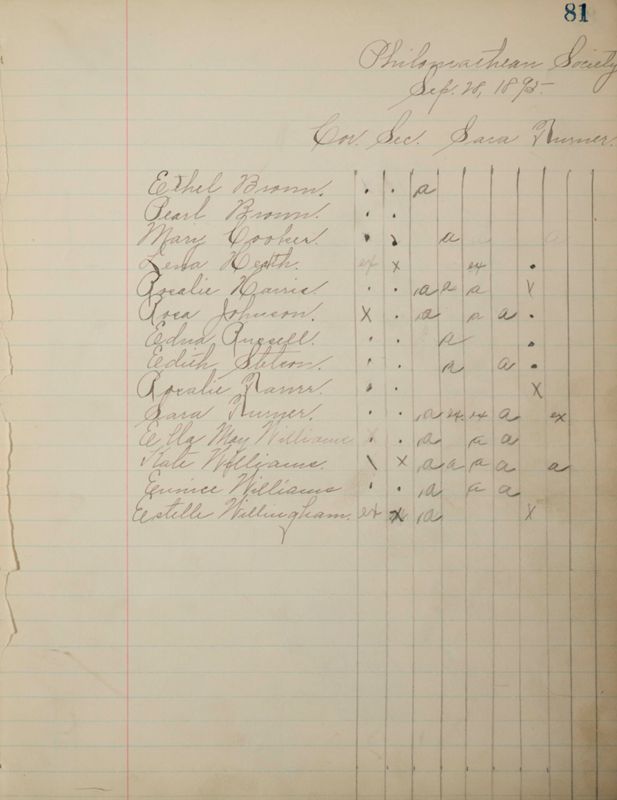 81
Philomathean Society
Sep. 28, 1895-
Cor. Sec. Sara Turner.
Ethel Brown. . . a
Pearl Brown. . .
Mary Cooker. . . a
Lena Heath. ex x ex .
Rosalie Harris. . . a a a x
Rosa Johnson. x . a a a .
Edna Russell. . . a .
Edith Stetson. . . a a .
Rosalie . . x
Sara Turner. . . a ex ex a ex
Ella May Williams x . a a a
Kate Williams. \ x a a a a a
Eunice Williams . . a a a
Estelle Willingham. ex x a x